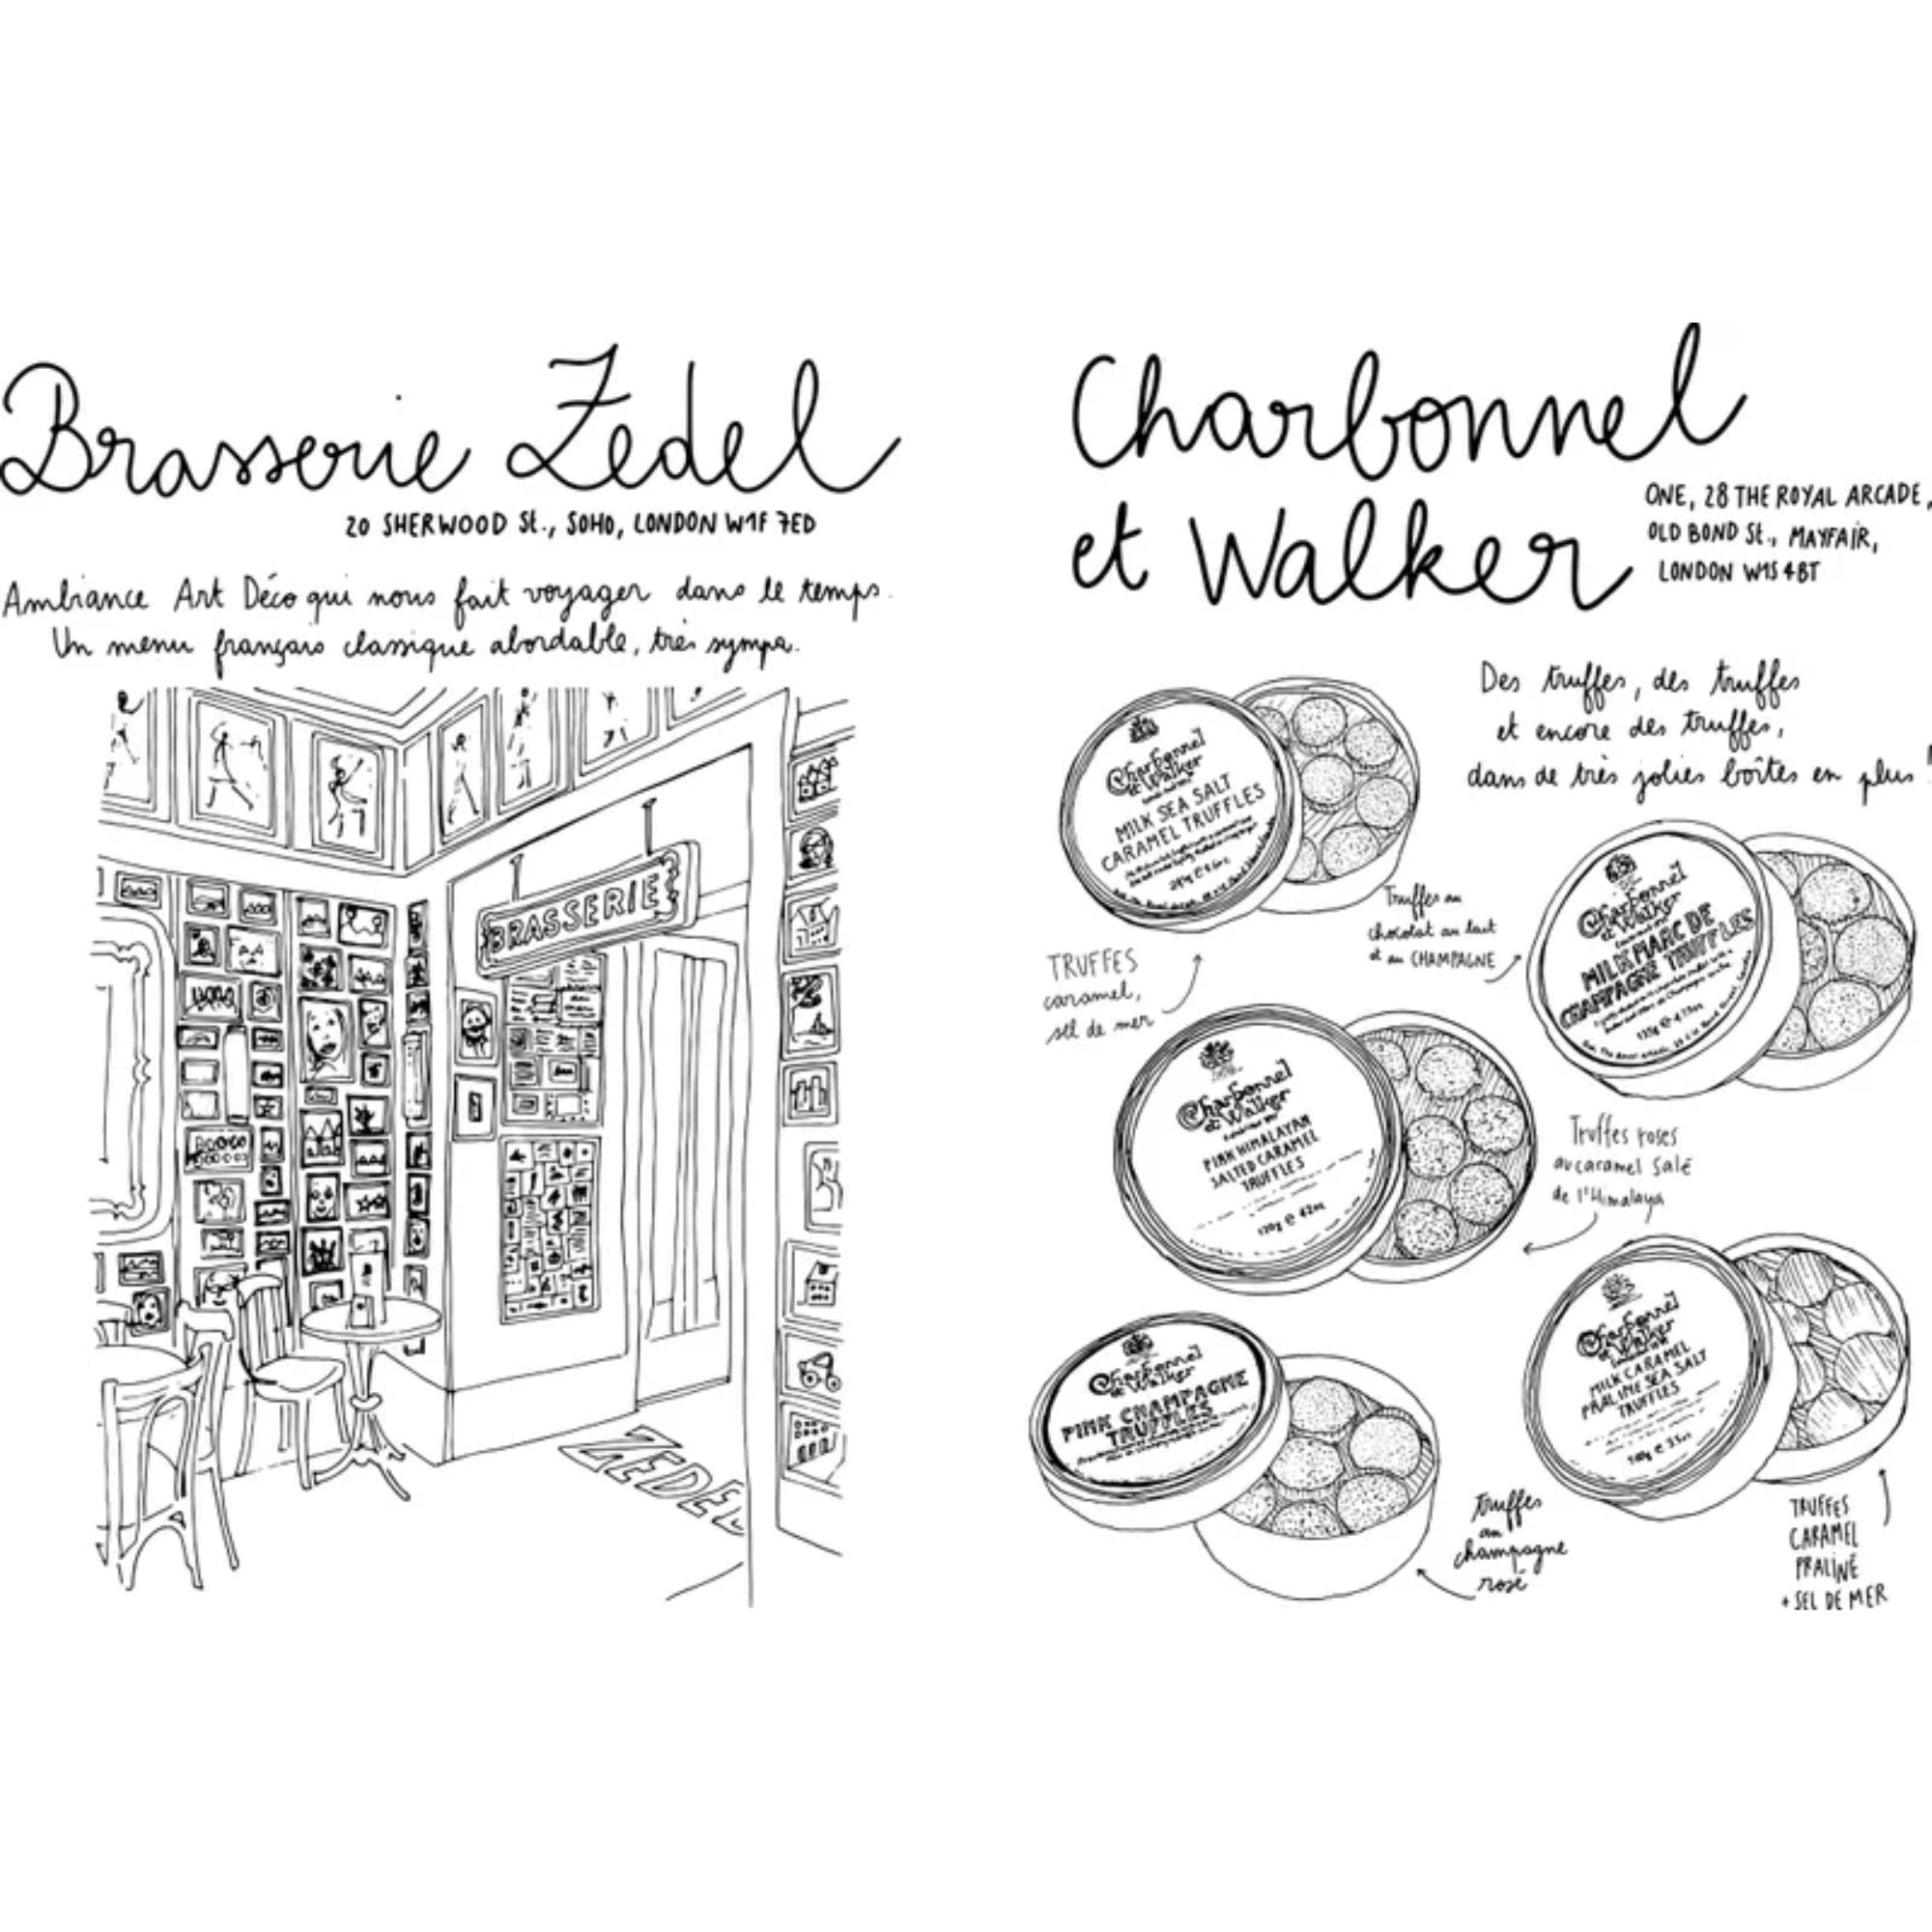 Brasserie Zedel
20 SHERWOOD St., SOHO, LONDON W1F 7ED
Ambiance Art Déco qui nous fait voyager dans le temps.
Un menu français classique abordable, très sympa.
BRASSERIE
ZEDEL
Charbonnel
et Walker
ONE, 28 THE ROYAL ARCADE,
OLD BOND St., MAYFAIR,
LONDON W1S 4BT
Des truffes, des truffes
et encore des truffes,
dans de très jolies boîtes en plus !
Charbonnel
et Walker
MILK SEA SALT
CARAMEL TRUFFLES
TRUFFES
caramel,
sel de mer
Truffes au
chocolat au lait
et au CHAMPAGNE
Charbonnel
et Walker
MILK MARC DE
CHAMPAGNE TRUFFLES
Charbonnel
et Walker
PINK HIMALAYAN
SALTED CARAMEL
TRUFFLES
120g e 42oz
Truffes roses
au caramel salé
de l'Himalaya
Charbonnel
et Walker
PINK CHAMPAGNE
TRUFFLES
truffes
au
champagne
rosé
Charbonnel
et Walker
MILK CARAMEL
PRALINE SEA SALT
TRUFFLES
TRUFFES
CARAMEL
PRALINÉ
+ SEL DE MER